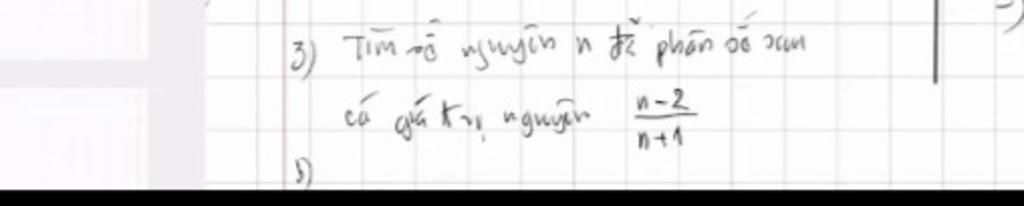 3) Tìm số nguyên n để phân số sau
có giá trị nguyên \frac{n-2}{n+1}